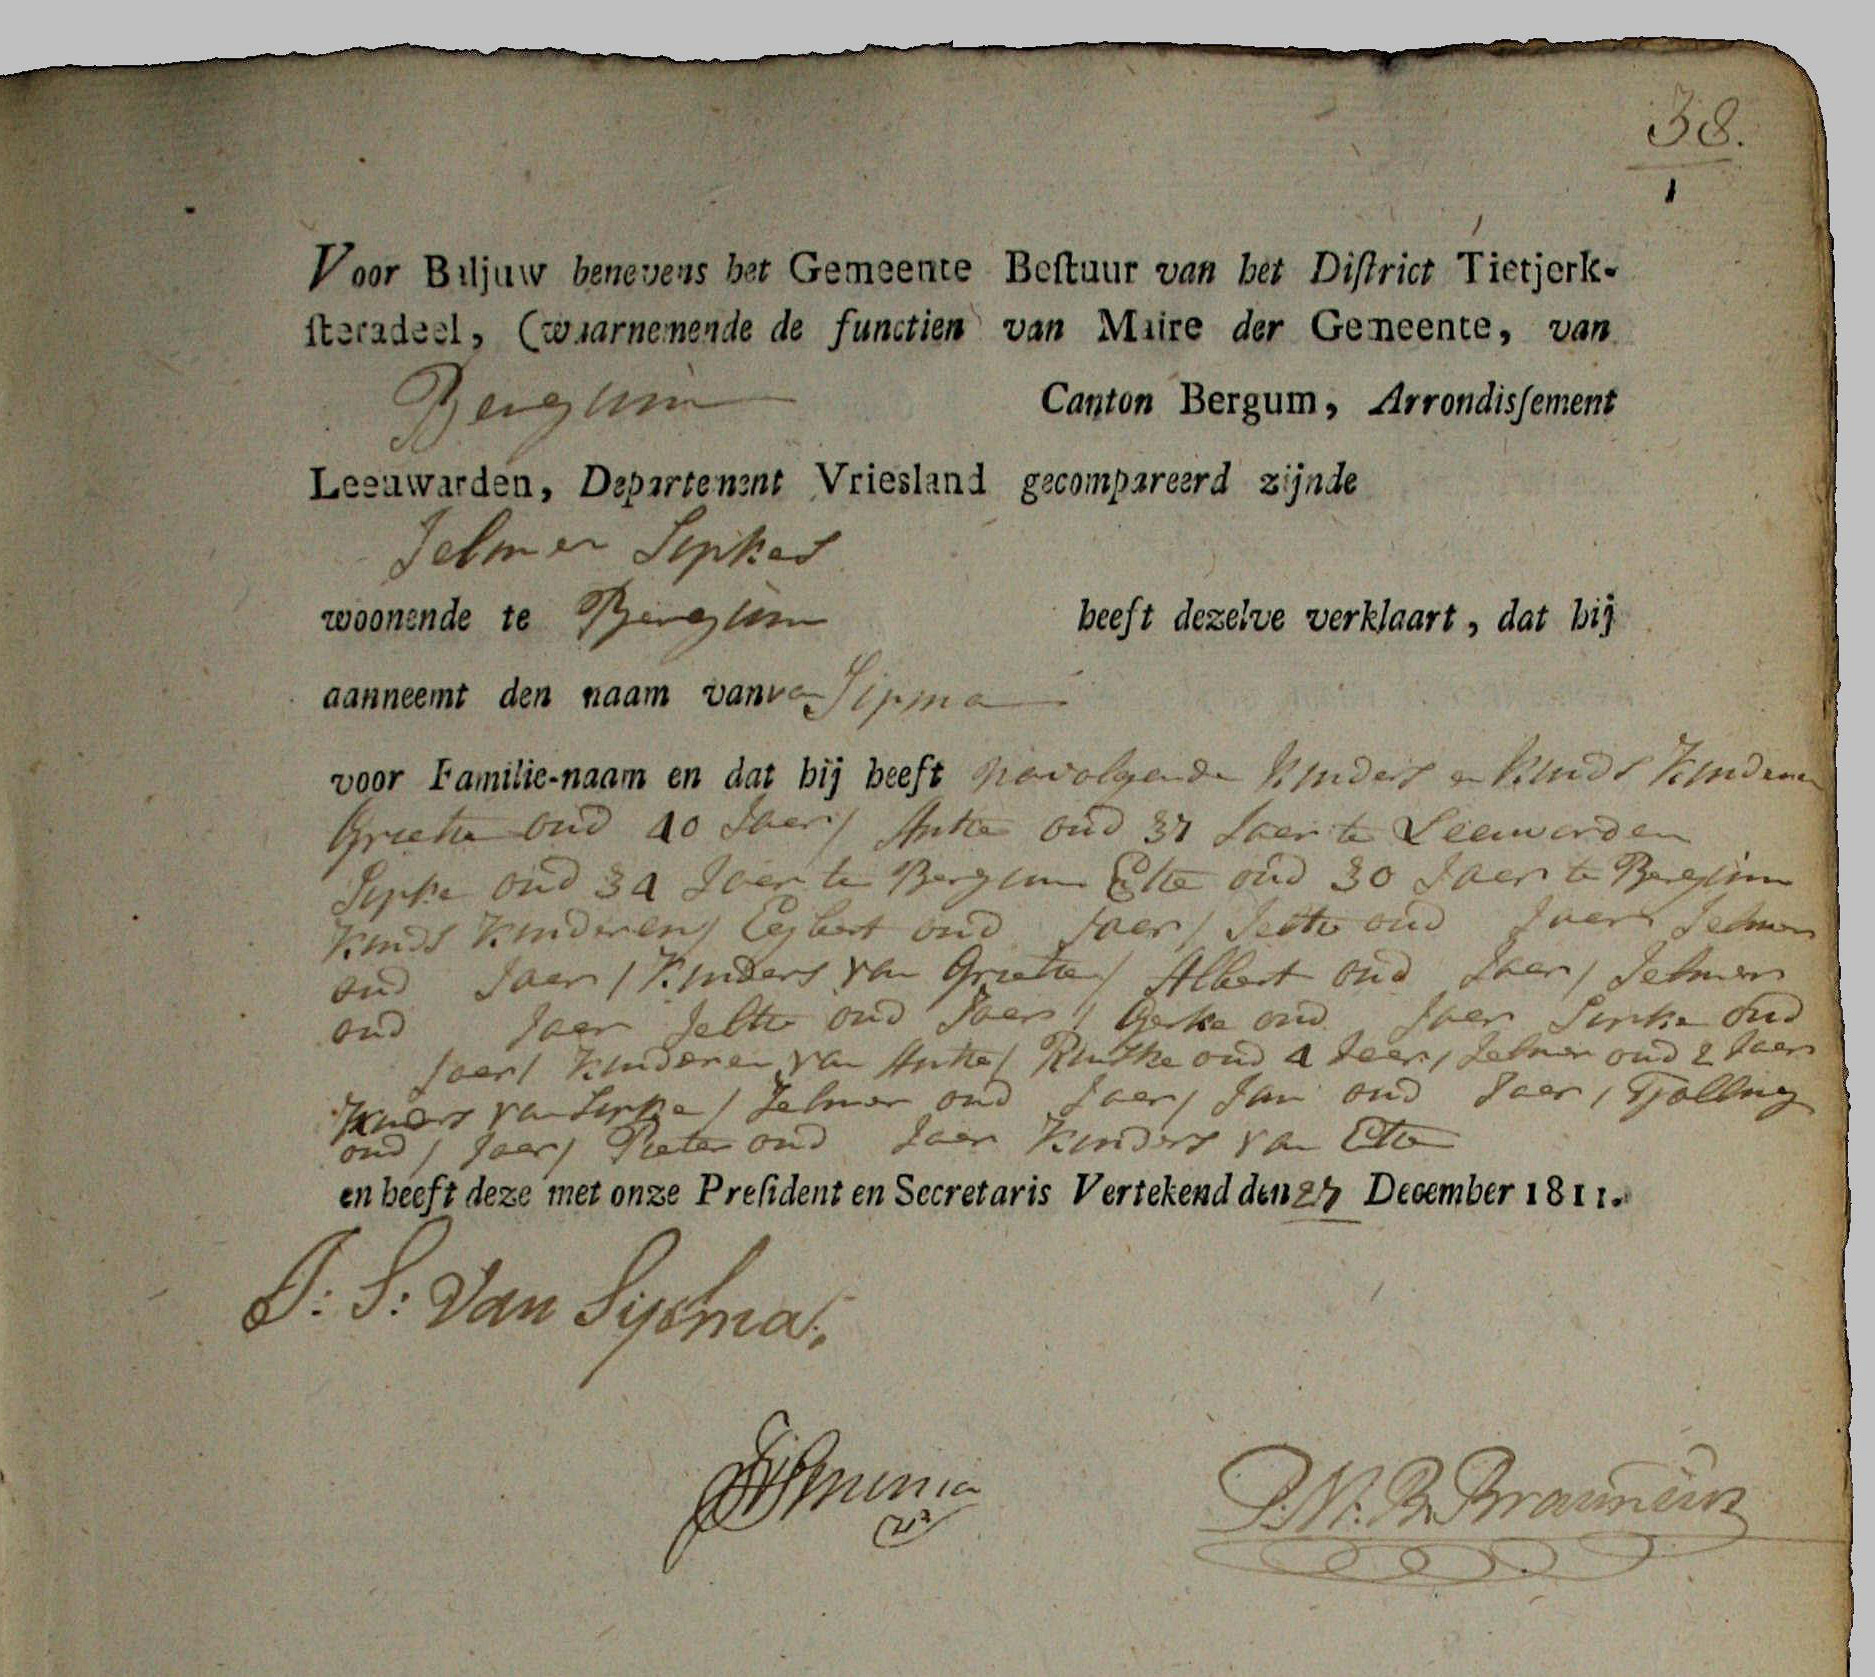 38.
1
Voor Biljuw benevens het Gemeente Bestuur van het District Tietjerk-
steradeel, (waarnemende de functien van Maire der Gemeente, van
Bergum
Canton Bergum, Arrondissement
Leeuwarden, Departement Vriesland gecompareerd zijnde
Jelmer Sipkes
woonende te Bergum heeft dezelve verklaart, dat hij
aanneemt den naam van van Sipma
voor Familie-naam en dat hij heeft navolgende Kinders en Kinds Kinderen
Grietie oud 40 Jaer / Antie oud 37 Jaer te Leeuwarden
Sipke oud 34 Jaer te Bergum Eltie oud 30 Jaer te Bergum
Kinds Kinderen / Egbert oud Jaer / Jeltie oud Jaer Jelmer
oud Jaer / Kinders van Grietie / Albert oud Jaer / Jelmer
oud Jaer Jeltie oud Jaer / Gerke oud Jaer Sipke oud
Jaer / Kinderen van Antie / Rintke oud 4 Jaer / Jelmer oud 2 Jaer
Kinders van Sipke / Jelmer oud Jaer / Jan oud Jaer / Tjalling
oud / Jaer / Pieter oud Jaer Kinders van Etie
en heeft deze met onze President en Secretaris Vertekend den 27 December 1811.
J: S: van Sijpma